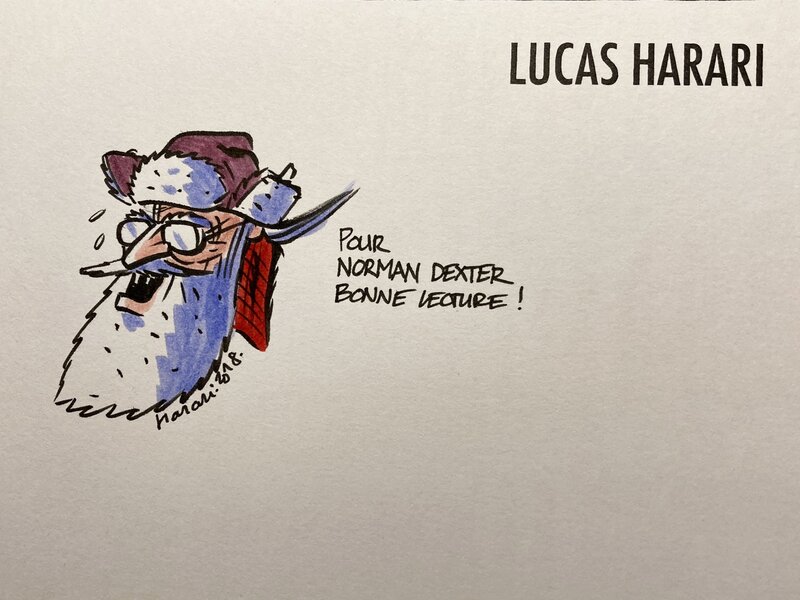 LUCAS HARARI
POUR
NORMAN DEXTER
BONNE LECTURE !
Harari. 2018.